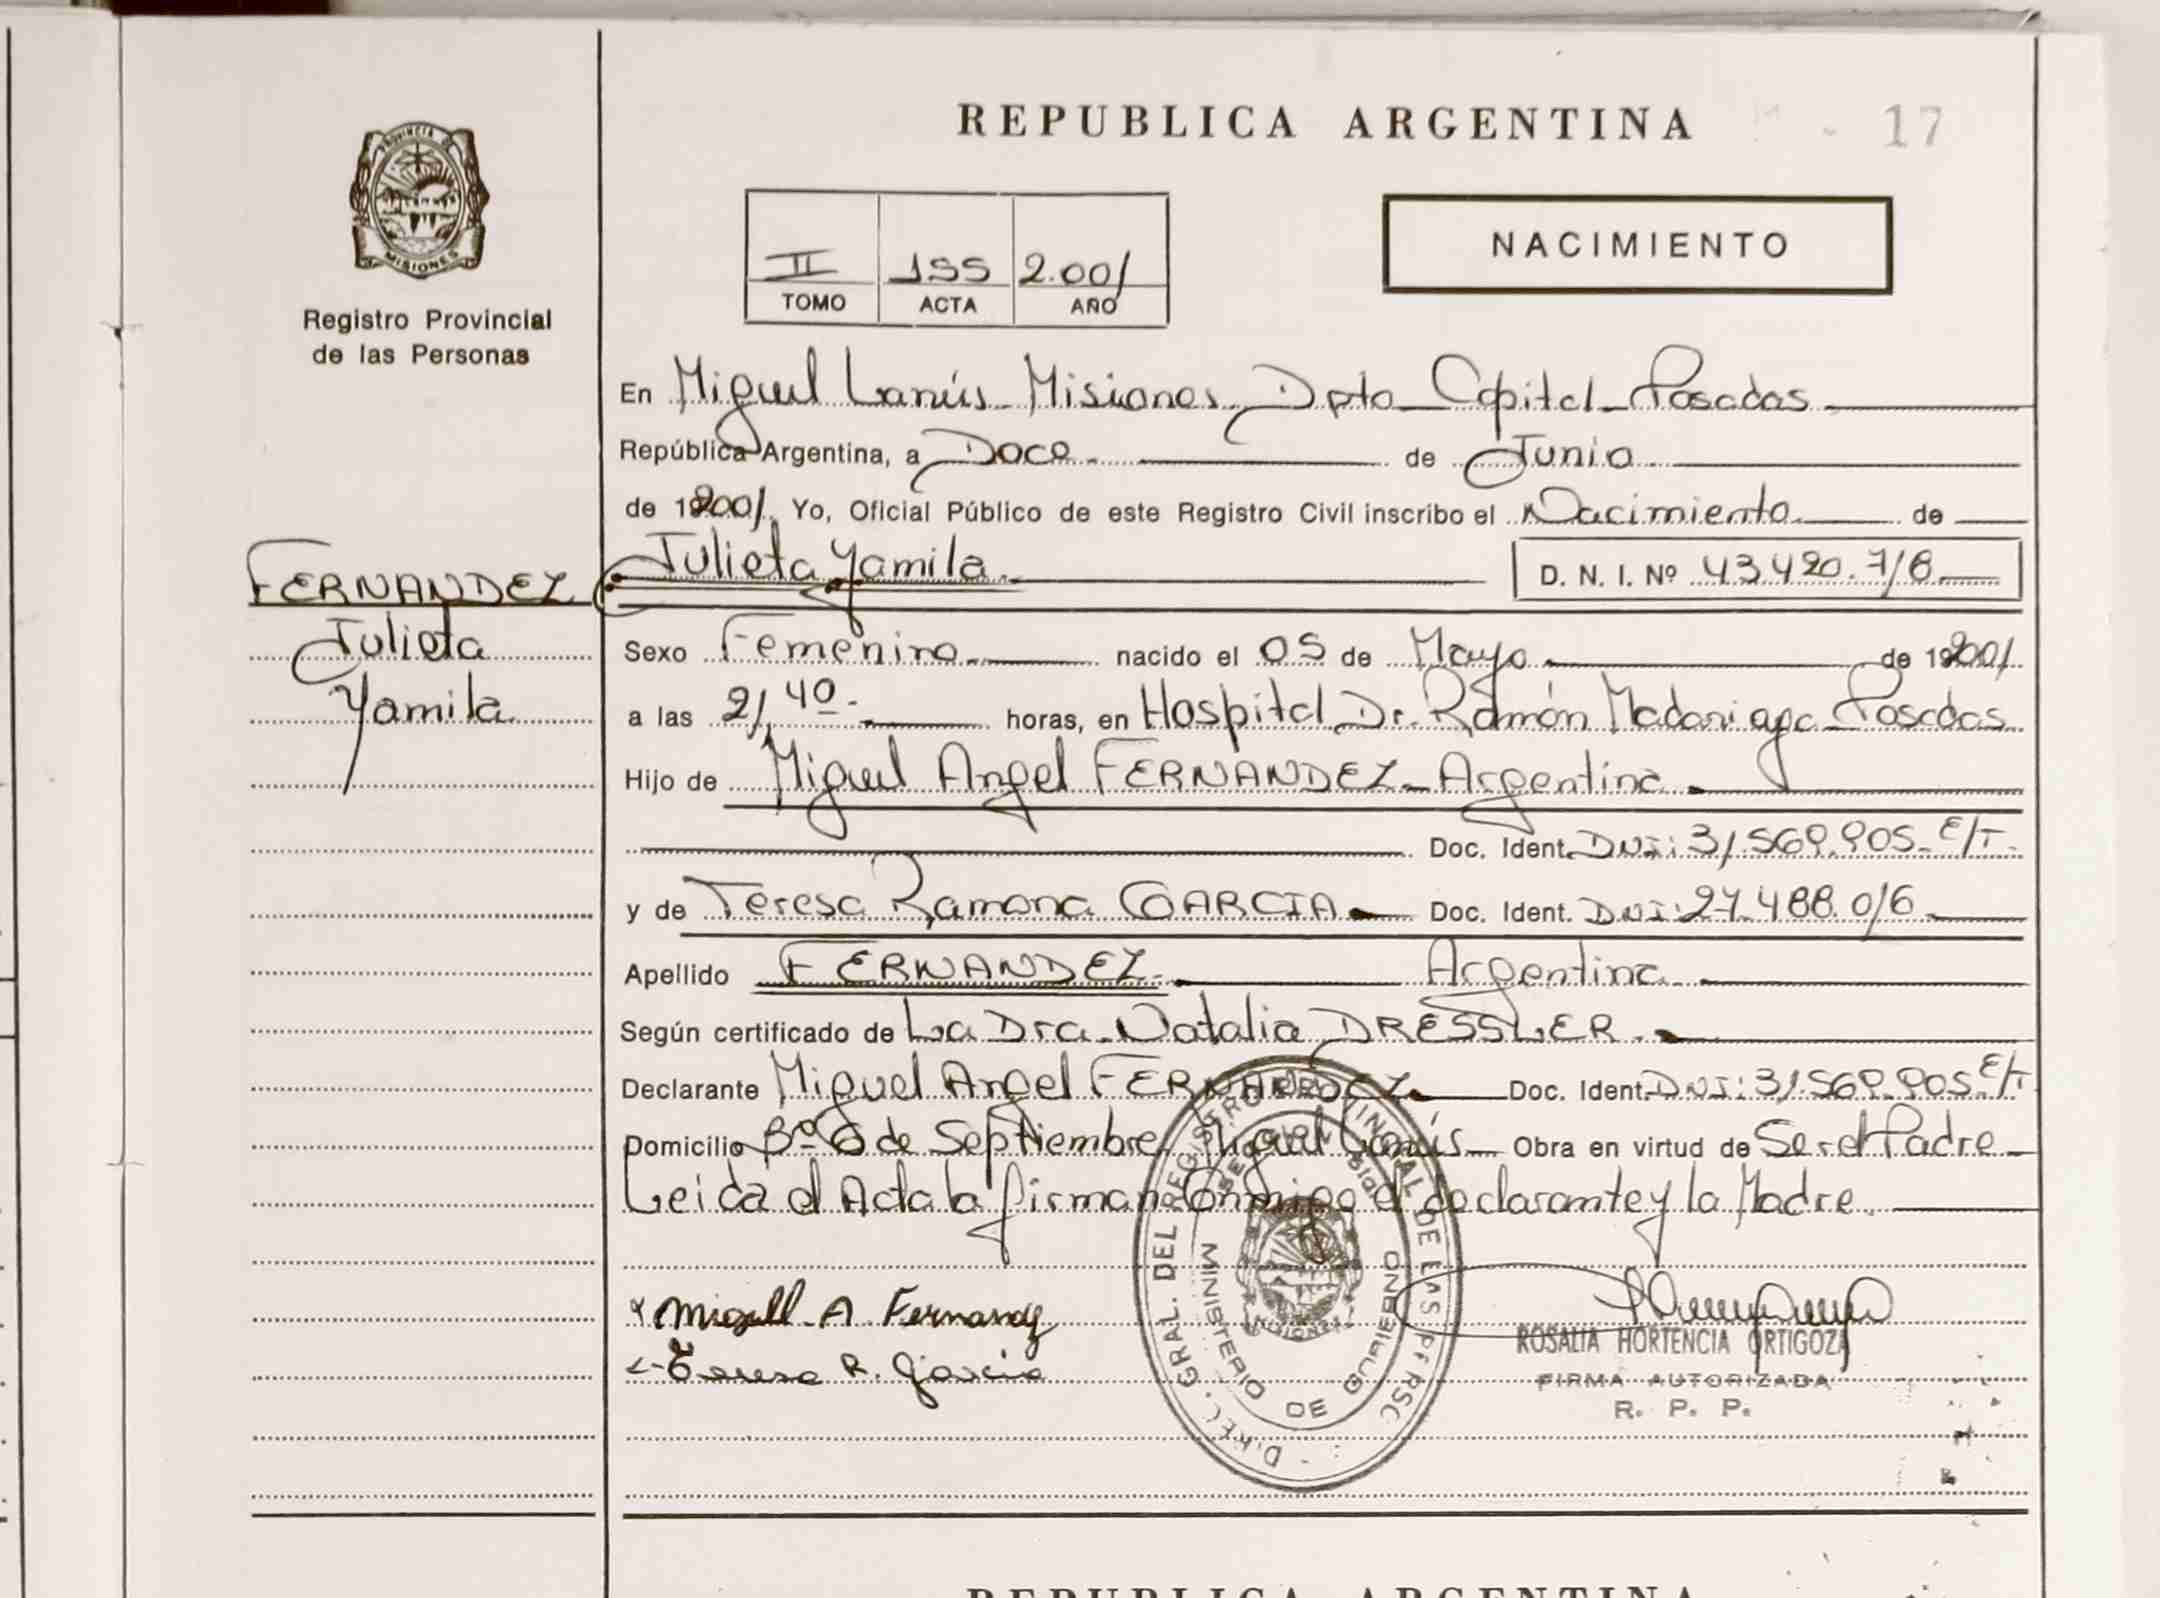 REPUBLICA ARGENTINA
17
PROVINCIA DE
MISIONES
Registro Provincial
de las Personas
II 155 2.001
TOMO ACTA AÑO
NACIMIENTO
En Miguel Lanús - Misiones, Dpto Capital - Posadas
República Argentina, a Doce de Junio
de 192001 Yo, Oficial Público de este Registro Civil inscribo el Nacimiento de
FERNANDEZ Julieta Yamila D. N. I. Nº 43.420.716
Julieta
Yamila
Sexo Femenino nacido el 05 de Mayo de 192001
a las 21,40 horas, en Hospital Dr. Ramón Madariaga - Posadas
Hijo de Miguel Angel FERNANDEZ - Argentina
Doc. Ident. DNI: 31.569.905 - E/T.
y de Teresa Ramona GARCIA Doc. Ident. DNI: 27.488.016
Apellido FERNANDEZ Argentina
Según certificado de La Dra. Natalia DRESSLER.
Declarante Miguel Angel FERNANDEZ Doc. Ident. DNI: 31.569.905 E/T
Domicilio Bº 6 de Septiembre Miguel Lanús Obra en virtud de Ser el Padre
Leida el Acta la firman Conmigo el declarante y la Madre.
Miguell A. Fernandz
Teresa R. Garcia
DIREC. GRAL. DEL REGISTRO PROVINCIAL DE LAS PERS
MINISTERIO DE GOBIERNO
MISIONES
ROSALIA HORTENCIA ORTIGOZA
FIRMA AUTORIZADA
R. P. P.
REPUBLICA ARGENTINA